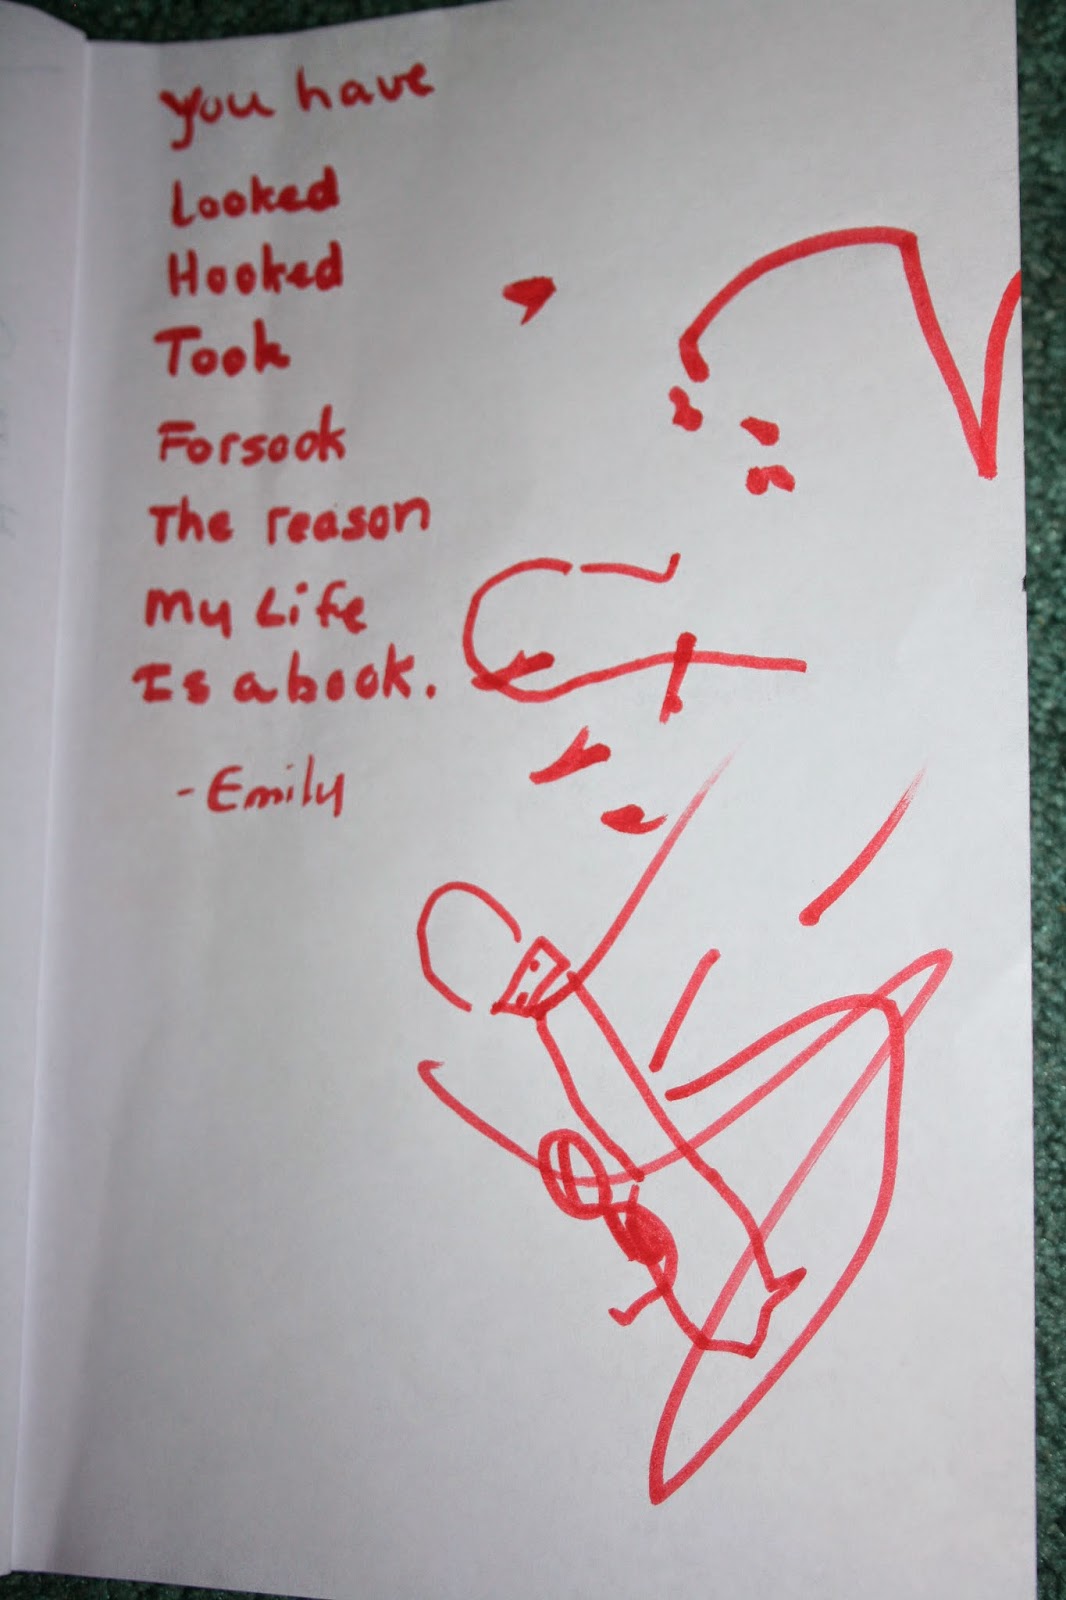 You have
Looked
Hooked
Took
Forsook
The reason
My Life
Is a book.
- Emily